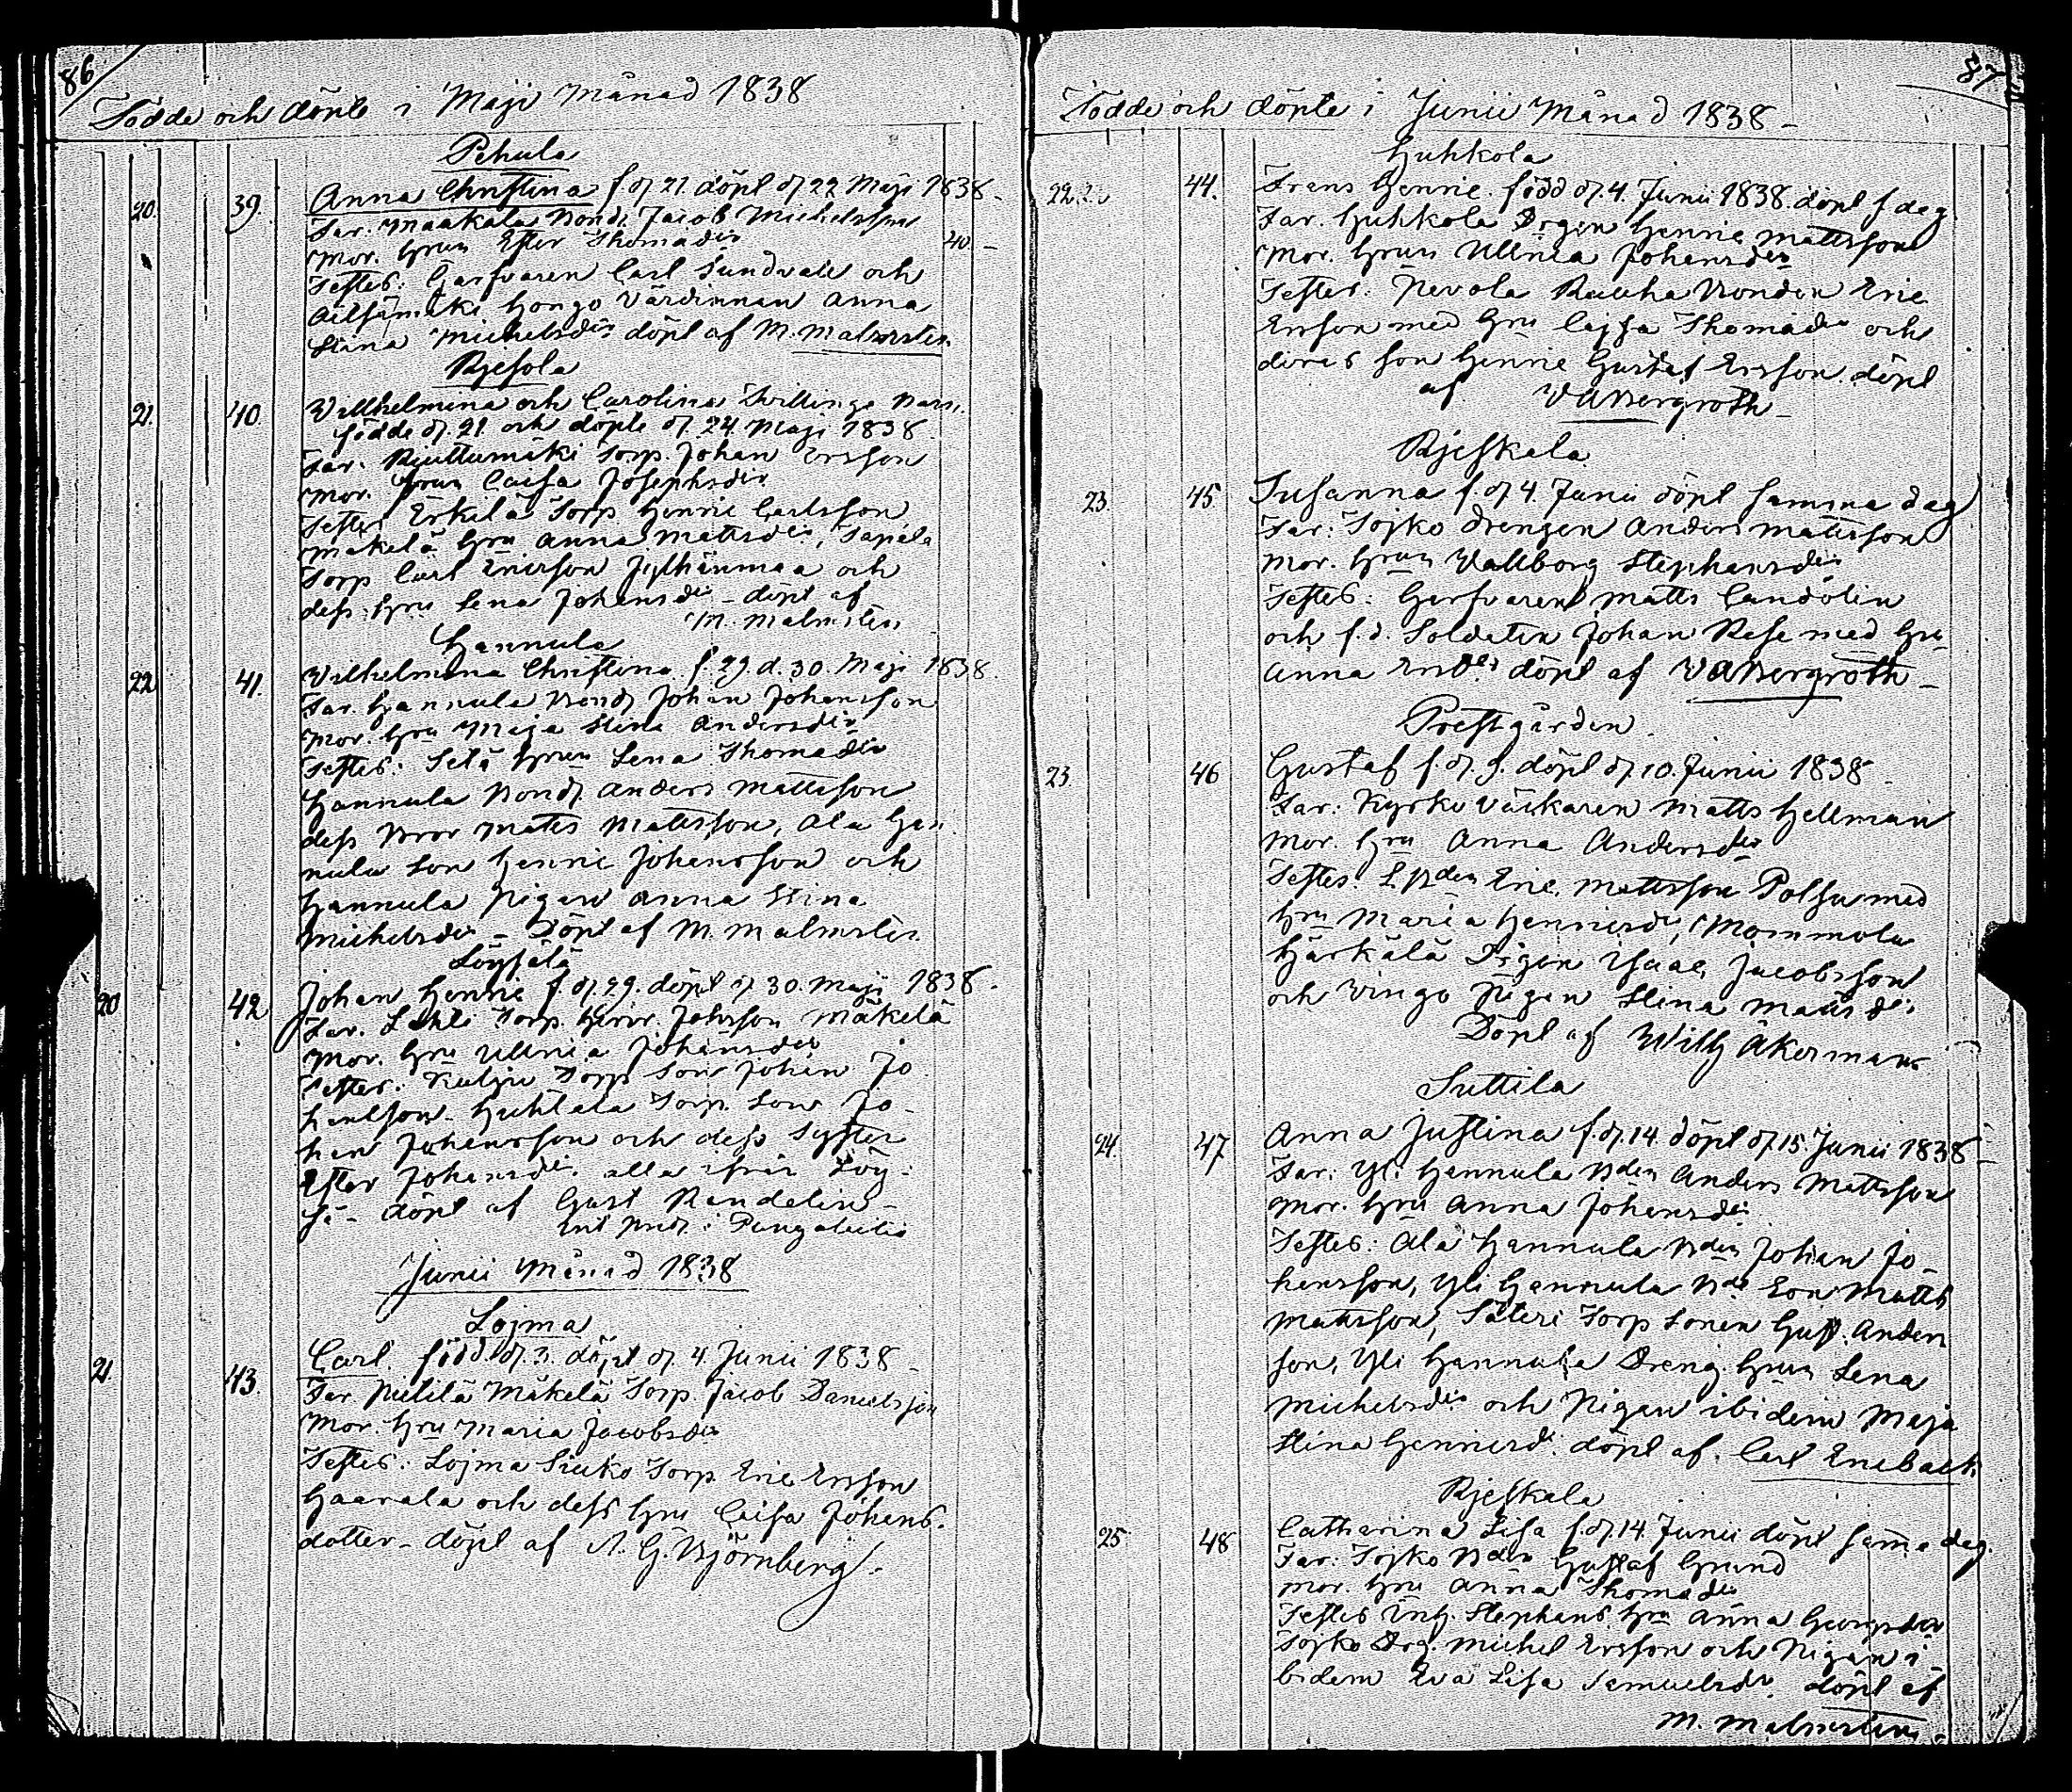 86
Födde och döpte i Maji Månad 1838
Pehula
20. 39. Anna Christina f d 21. döpt d 22 Maji 1838 -
Far. Maakala Bond. Jacob Michelsson
Mor. Hrun Ester Thomadr 40. -
Testes: Garfvaren Carl Sundvall och
Hongo Värdinnan Anna
Stina Michelsdr döpt af M. Malmsten
Rjesola
21. 40 Vilhelmina och Carolina Tvillinge Barn.
födde d. 21 och döpte d. 24 Maji 1838.
Far. Ruuttumäki Torp. Johan Ersson
Mor. Hrun Caisa Josephsdr
Testes Erkilä Torp Henric Carlsson
Mäkelä Hru Anna Mattsdr, Tapala
Torp Carl Ericsson och
dess Hru Lena Johansdr - döpt af
M. Malmsten
Hannula
22 41. Vilhelmina Christina f. 29. d. 30. Maji 1838.
Far. Hannula Bond Johan Johansson
Mor. Hru Maja Stina Andersdr
Testes: Setä Hrun Lena Thomadr
Hannula Bond. Anders Mattsson
dess Bror Matts Mattsson, Ala Han
nula Son Henric Johansson och
Hannula Pigan Anna Stina
Michelsdr - Döpt af M. Malmsten.
Löysälä
20 42 Johan Henric f. d 29. döpt d 30. Maji 1838.
Far. Torp. Henr. Johsson Mäkelä
Mor. Hru Ullrica Johansdr
Testes: Kulju Torp Son Johan Jo
hansson. Huhtala Torp. Son Jo-
han Johansson och dess Syster
Ester Johansdr. alla ifrån Löy-
sä - döpt af Gust Randelin -
i Pungalaitio
Junii Månad 1838
Lojma
21. 43. Carl. född. d. 3. döpt d. 4. Junii 1838 -
Far. Pietilä Mäkelä Torp. Jacob Danielsson
Mor. Hru Maria Jacobsdr
Testes: Lojma Sieko Torp Eric Ersson
Haarala och dess Hru Caisa Johans-
dotter - döpt af A. G. Björnberg.
87
Födde och döpte i Junii Månad 1838 -
Huhkola
22. 44. Frans Henric. född d. 4. Junii 1838. döpt s dag
Far. Huhkola Drgen Henric Mattsson
Mor. Hrun Ullrica Johansdr
Testes: Nevola Rauha Bonden Eric
Ersson med Hru Cajsa Thomadr och
deras son Henric Gustaf Ersson. döpt
af V A Bergroth -
Rjeskala
23. 45. Susanna f. d 4 Junii döpt samma dag
Far: Sojko Drengen Anders Mattsson
Mor. Hrun Vallborg Stephansdr
Testes: Garfvaren Matts Candolin
och f. d. Soldaten Johan Rese med Hru
Anna Ersdr döpt af V A Bergroth -
Prestgården
23. 46 Gustaf f d. 9. döpt d. 10. Junii 1838 -
Far: Kyrko Väckaren Matts Hellman
Mor. Hru Anna Andersdr
Testes: L. Bden Eric Mattsson Polsu med
Hru Maria Henricsdr, Mommola
Härkälä Drgen Isaac Jacobsson
och Vingo Pigan Stina Mattsdr
Döpt af Wilh Åkerman
Suttila
24. 47 Anna Justina f. d. 14. döpt d. 15. Junii 1838 -
Far: Yli Hannula Bden Anders Mattsson
Mor. Hru Anna Johansdr
Testes: Ala Hannula Bden Johan Jo-
hansson, Yli Hannula Bde Son Matts
Mattsson, Säteri Torp Sonen Gust. Anders
son, Yli Hannula Dreng. Hrun Lena
Michelsdr och Pigan ibidem Maja
Stina Henricsd. döpt af. Carl Enebäck
Rjeskala
25 48 Catharina Lisa f. d. 14. Junii döpt sam̅a dag.
Far: Sojko Bden Gustaf Grund
Mor. Hru Anna Thomadr
Testes Enk. Stephans Hru Anna Georgsdr
Sojko Drg. Michel Ersson och Pigan i-
bidem Eva Lisa Samuelsdr. döpt af
M. Malmsten